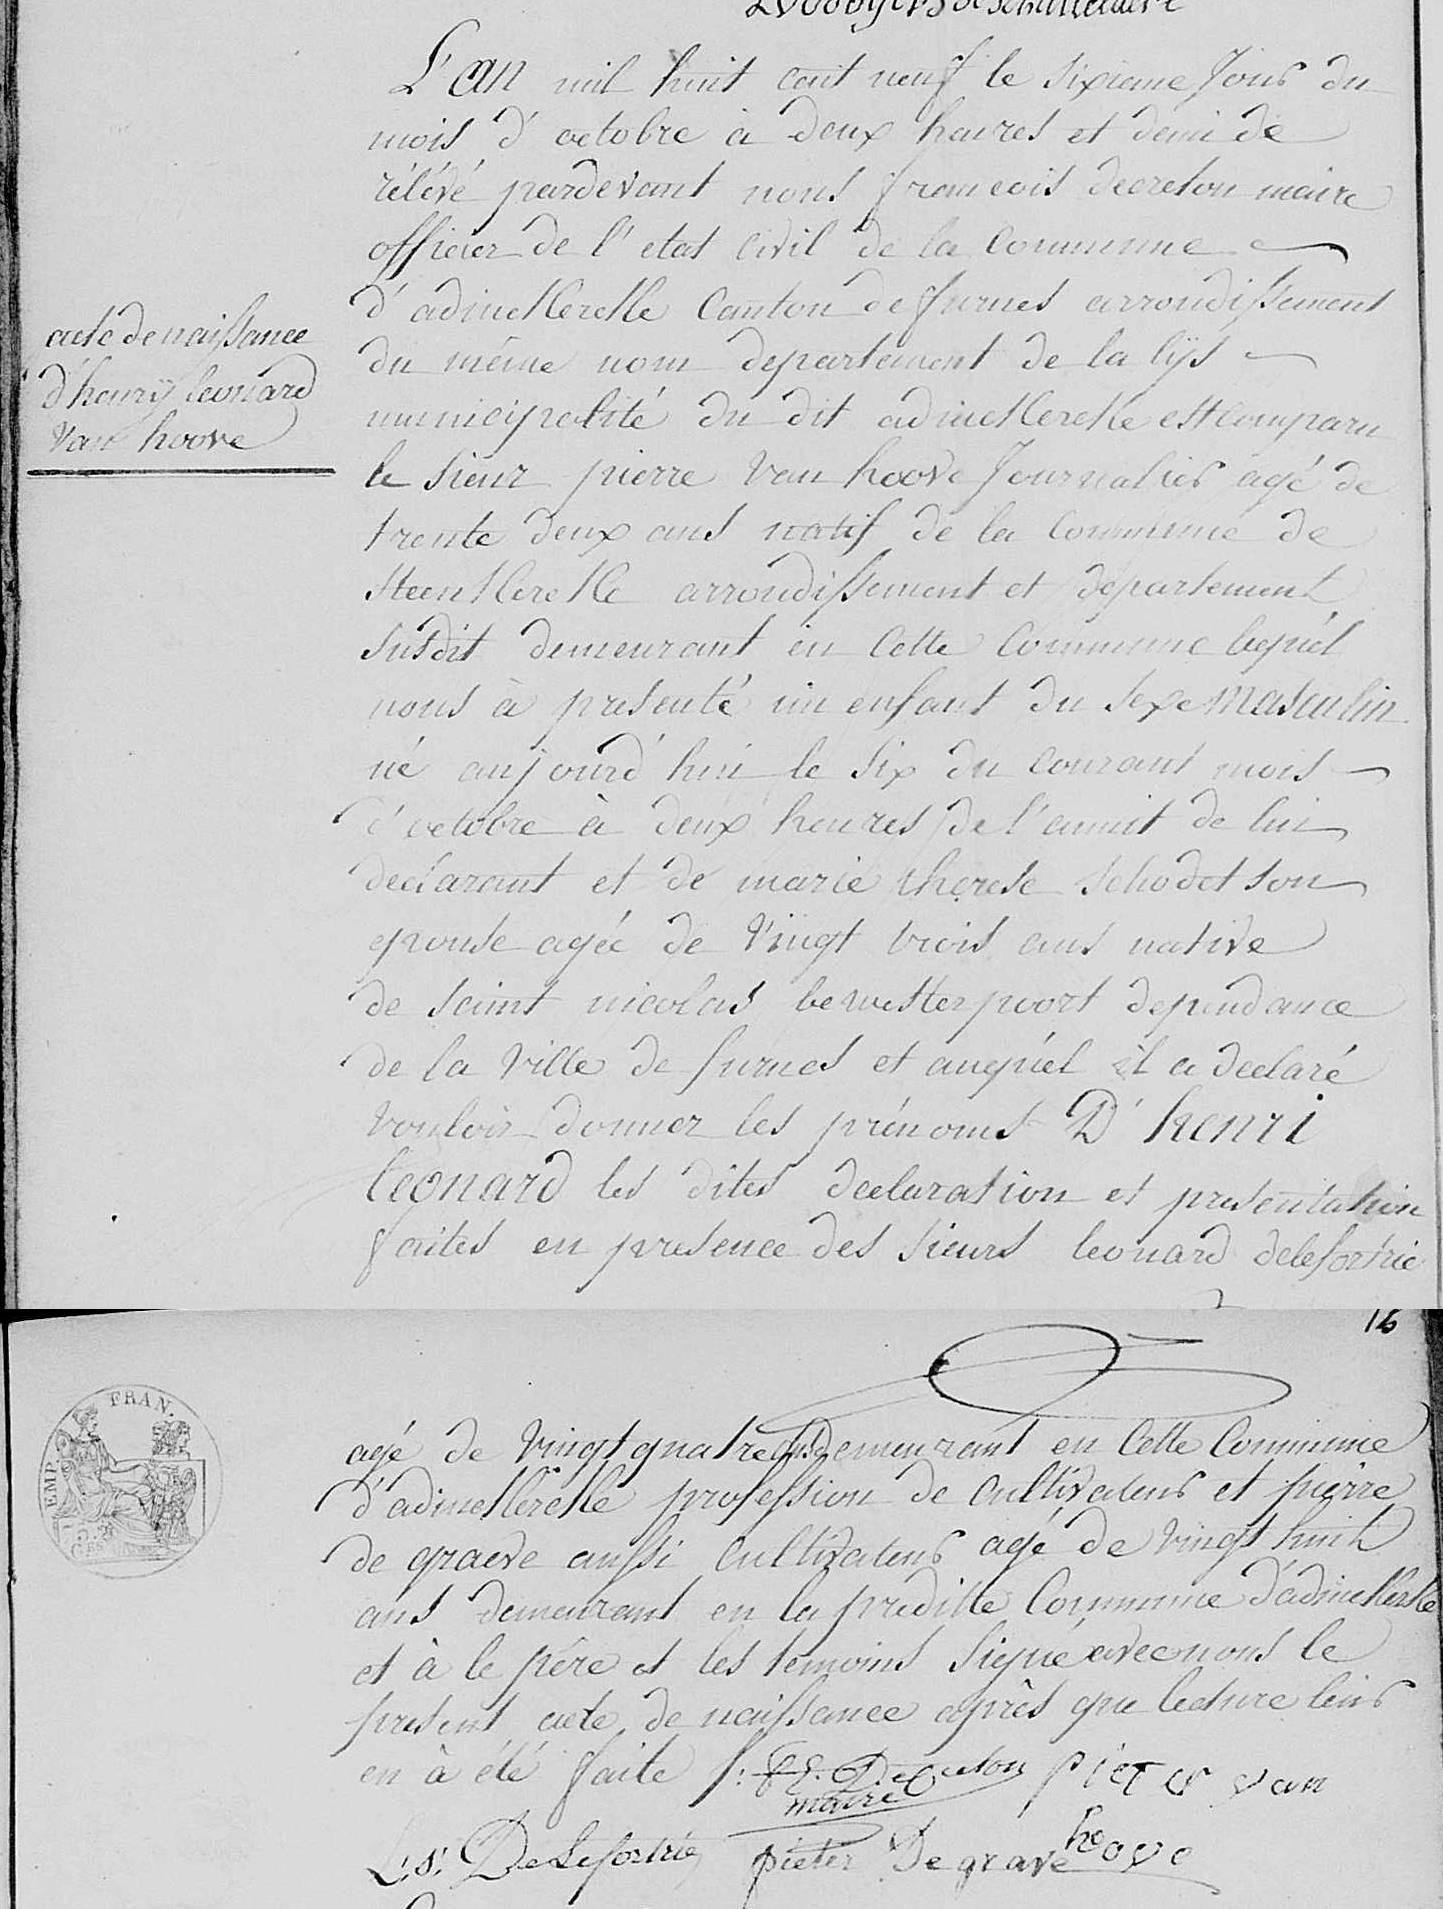 L'an mil huit cent neuf le sixieme Jour du
mois d'octobre à deux heures et demi de
rélévé pardevant nous francois decreton maire
officier de l'etat civil de la Commune
d'adinckercke Canton de furnes arrondissement
du même nom departement de la lÿs
municipalité du dit adinckercke est comparu
le sieur pierre van hoove Journalier agé de
trente deux ans natif de la Commune de
steenkercke arrondissement et departement
susdit demeurant en cette Commune lequél
nous à presenté un enfant du sexe masculin
né aujourd'hui le six du courant mois
d'octobre à deux heures de l'anuit de lui
declarant et de marie therese schodet son
epouse agée de vingt trois ans native
de saint nicolas bewesterpoort dependance
de la ville de furnes et auquél il a declaré
vouloir donner les prénoms D'henri
leonard les dites declaration et presentation
faites en presence des sieurs leonard delefortrie
acte de naissance
d'henrÿ leonard
van hoove
16
EMP. FRAN.
agé de vingt quatre ans demeurant en cette Commune
d'adinckercke profession de cultivateur et pierre
de graeve aussi cultivateur agé de vingt huit
ans demeurant en la preditte Commune d'adinckerke
et à le père et les temoins signé avec nous le
present acte de naissance après que lecture leur
en à été faite f: Decreton pieter van
maire hoove
L: S: DeLefortrie pieter Degrave